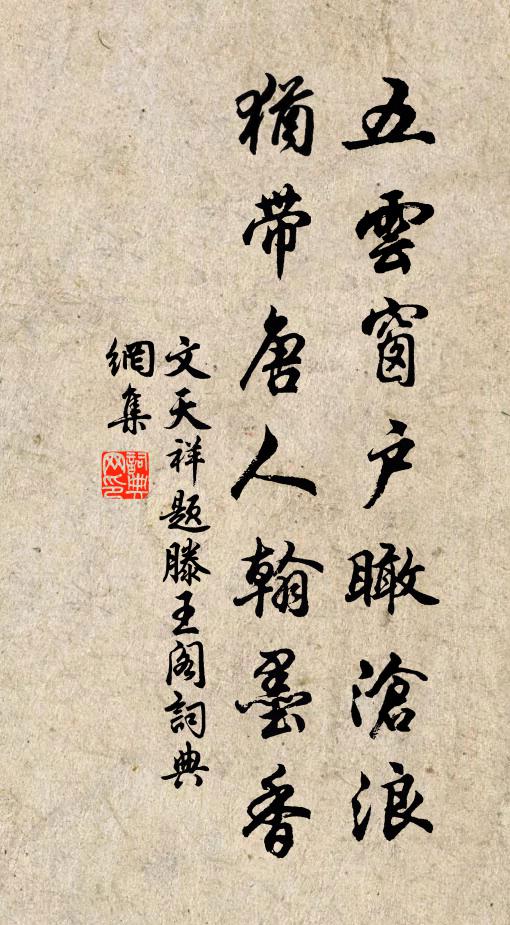 五雲窗戶瞰滄浪
猶带唐人翰墨香
文天祥题滕王阁詞典
網集
詞典網印